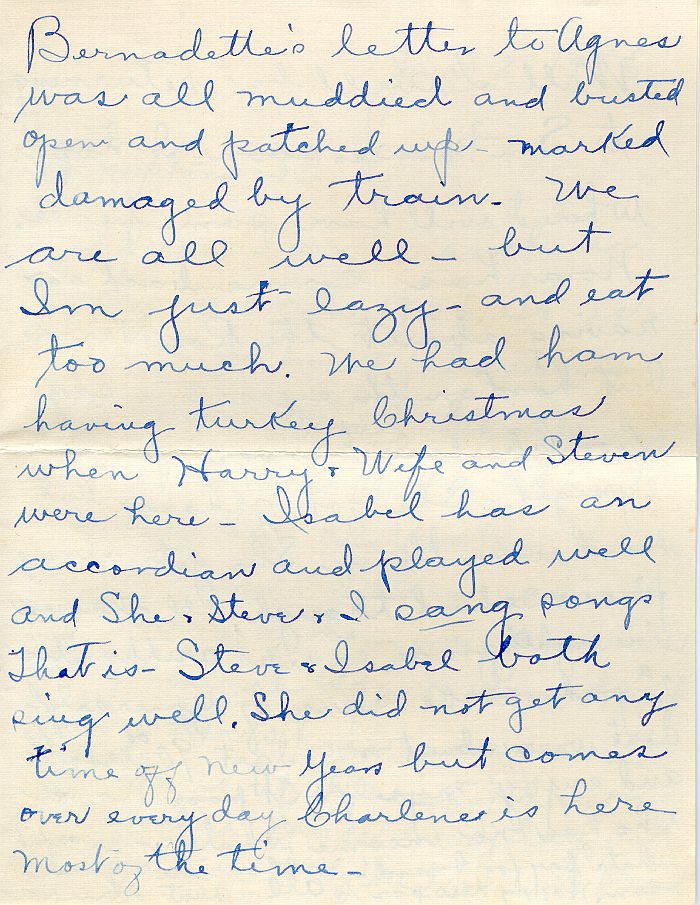 Bernadette's letter to Agnes
was all muddied and busted
open and patched up - marked
damaged by train - We
are all well - but
Im just lazy - and eat
too much. We had ham
having turkey Christmas
when Harry & Wife and Steven
were here - Isabel has an
accordian and played well
and She & Steve & I sang songs
That is - Steve & Isabel both
sing well. She did not get any
time off New Years but comes
over every day Charlene is here
Most of the time -